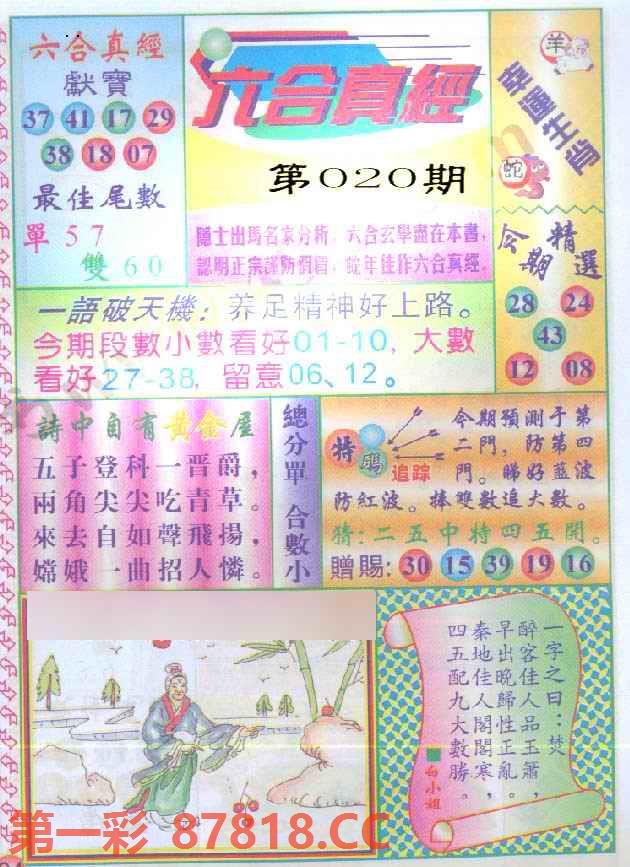 六合真經
獻寶
37 41 17 29
38 18 07
最佳尾數
單 5 7
雙 6 0
六合真經
第020期
隱士出馬名家分析，六合玄學盡在本書，
認明正宗謹防假冒，蛇年佳作六合真經。
羊
幸運生肖
蛇
今期精選
28 24
43
12 08
一語破天機：养足精神好上路。
今期段數小數看好01-10，大數
看好27-38，留意06、12。
詩中自有黃金屋
五子登科一晋爵，
兩角尖尖吃青草。
來去自如聲飛揚，
嫦娥一曲招人憐。
總分單 合數小
特碼
追踪
今期預測于第
二門，防第四
門。睇好藍波
防紅波。捧雙數追大數。
猜：二五中特四五開。
贈賜：30 15 39 19 16
一字之曰：焚
醉客佳人品玉簫，
早出晚歸性正亂。
秦地佳人閣閣寒，
四五配九大數勝。
白小姐
第一彩 87818.CC